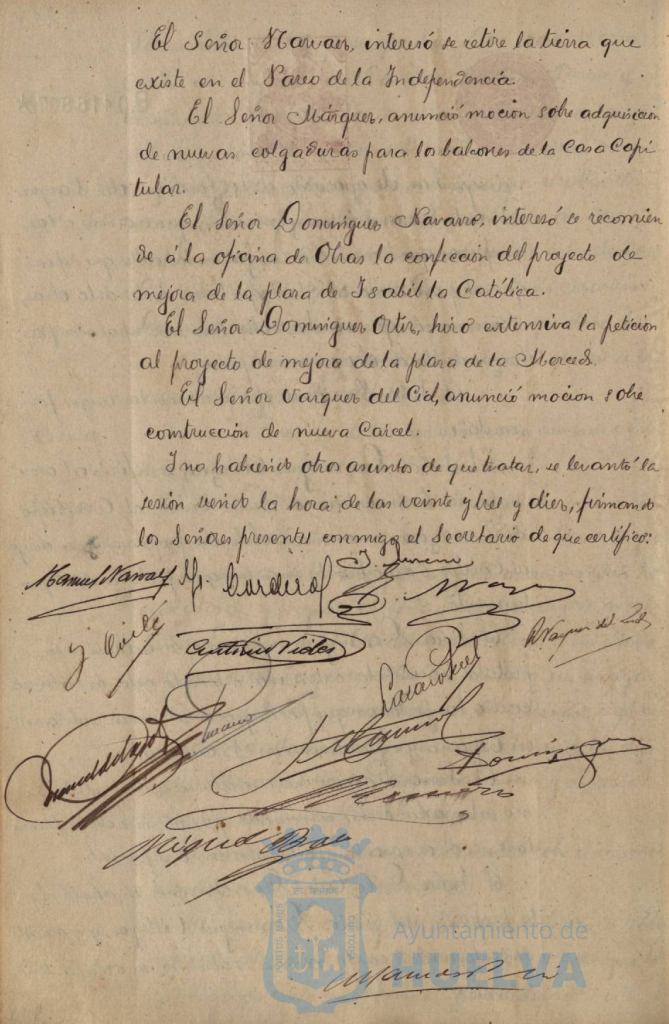 El Señor Narvaez, interesó se retire la tierra que
existe en el Paseo de la Independencia.
El Señor Márquez, anunció mocion sobre adquisicion
de nuevas colgaduras para los balcones de la Casa Capi
tular.
El Señor Dominguez Navarro, interesó se recomien
de á la oficina de Obras la confección del proyecto de
mejora de la plaza de Isabel la Católica.
El Señor Dominguez Ortiz, hizo extensiva la peticion
al proyecto de mejora de la plaza de la Merced.
El Señor Vazquez del Cid, anunció mocion sobre
construcción de nueva Carcel.
Y no habiendo otros asuntos de que tratar, se levantó la
sesión siendo la hora de las veinte y tres y diez, firmando
los Señores presentes conmigo el Secretario de que certifico:
Manuel Narvaez
Antonio Vides
Vazquez del Cid
Dominguez
Miguel
Ayuntamiento de
HUELVA